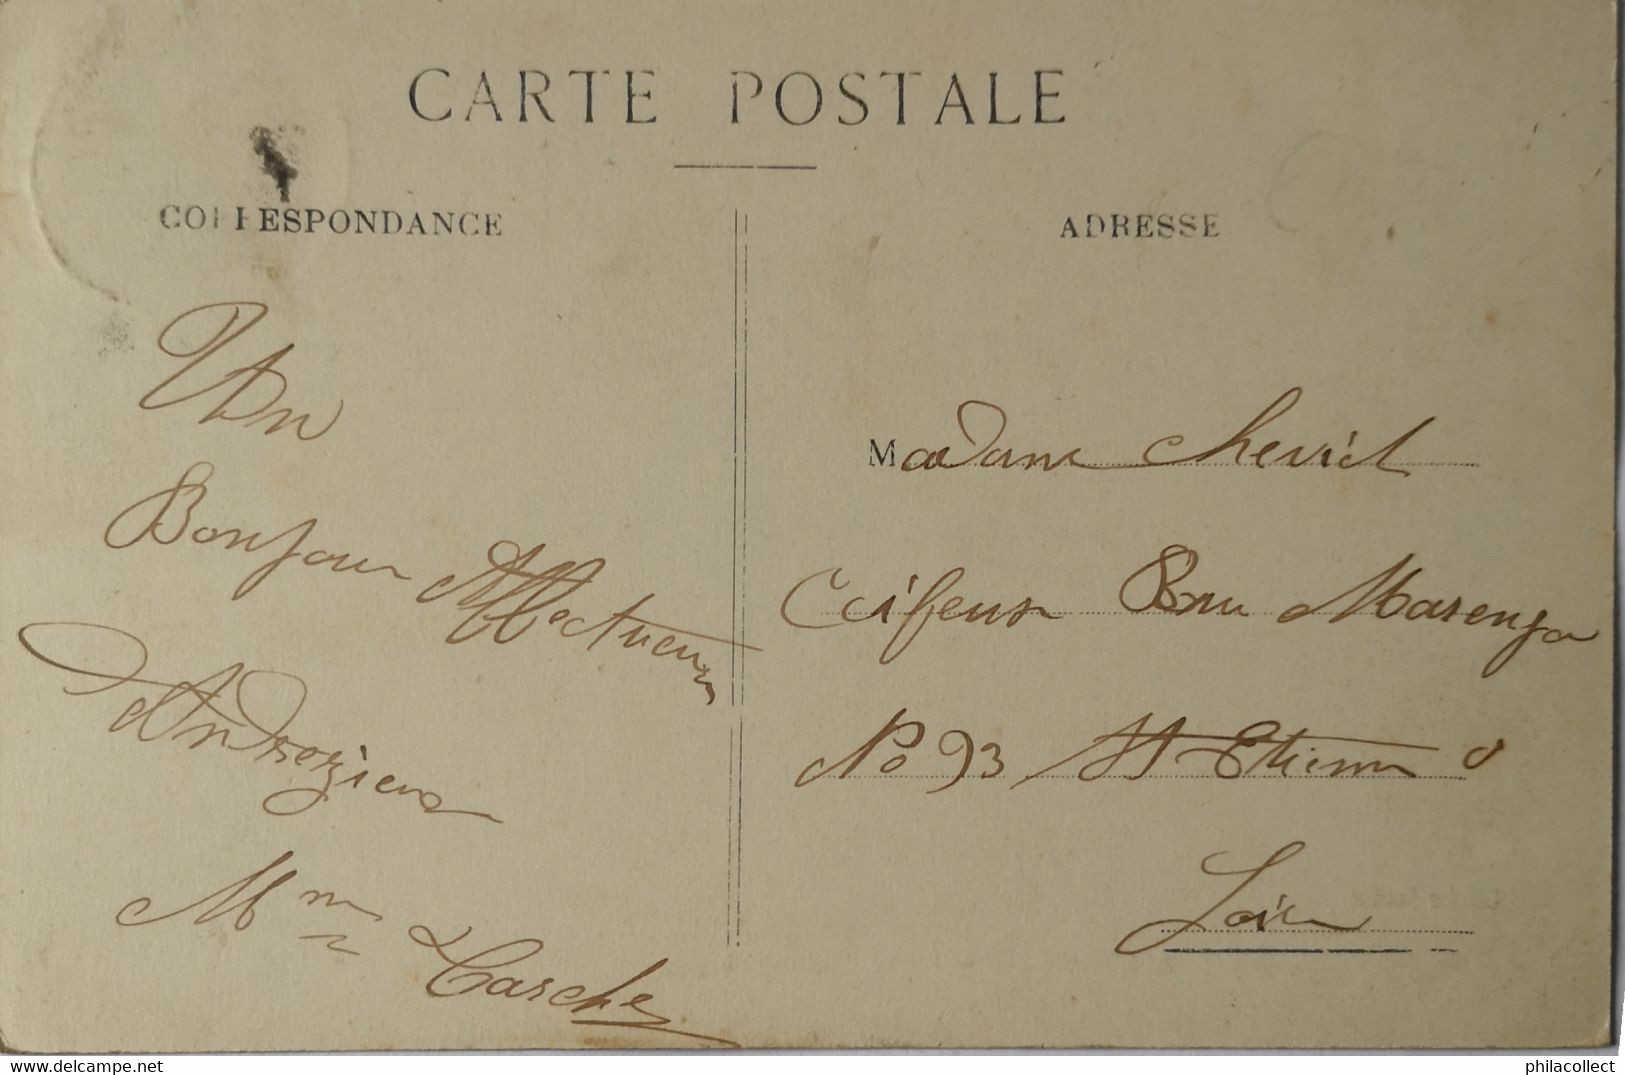 CARTE POSTALE
CORRESPONDANCE
ADRESSE
Un
Bonjour Affectueux
d'Andrézieux
Mme Larche
Madame Chevict
Coifeuse Rue Marengo
No 93 St Etienne
Loire
philacollect